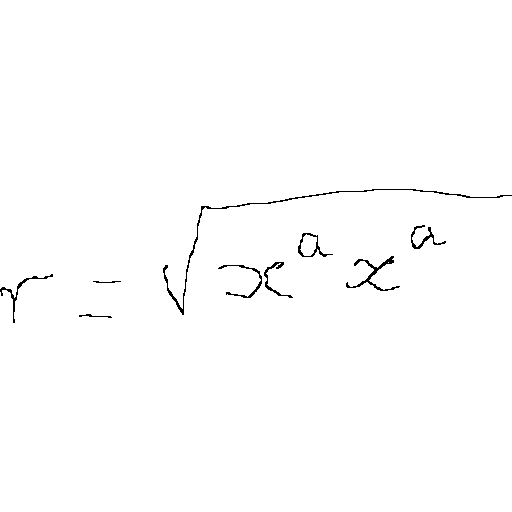 r = \sqrt{x^a x^a}